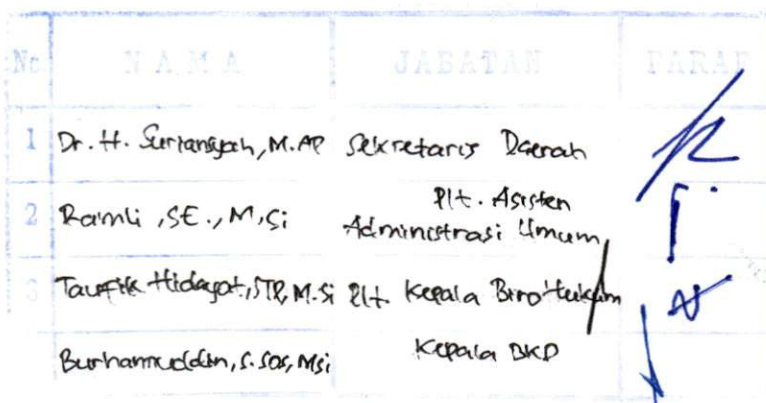 No NAMA JABATAN PARAF
1 Dr. H. Suriansyah, M.AP Sekretaris Daerah
2 Ramli, SE., M.Si Plt. Asisten
Administrasi Umum
3 Taufik Hidayat, STP, M.Si Plt. Kepala Biro Hukum
Burhanuddin, S.Sos, MSi Kepala BKD